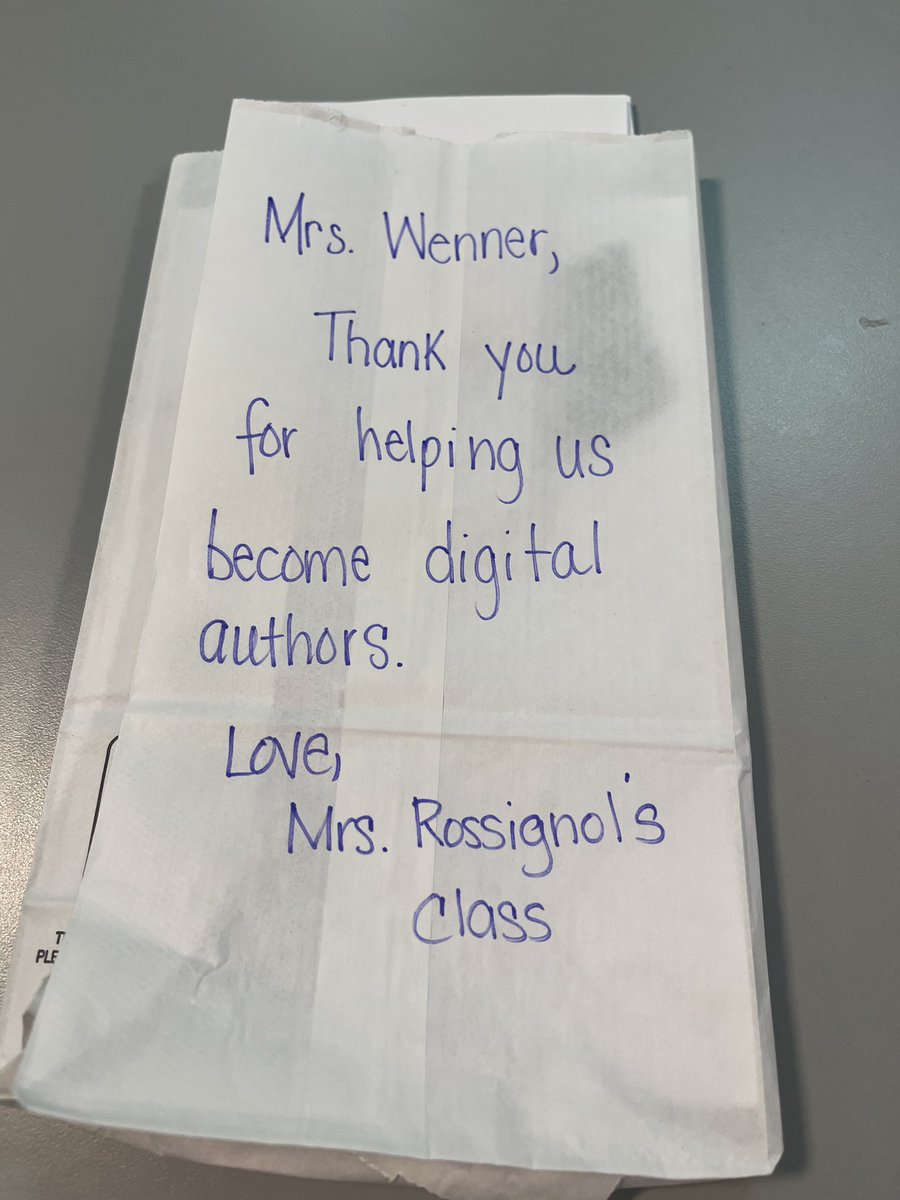 Mrs. Wenner,
Thank you
for helping us
become digital
authors.
Love,
Mrs. Rossignol's
Class